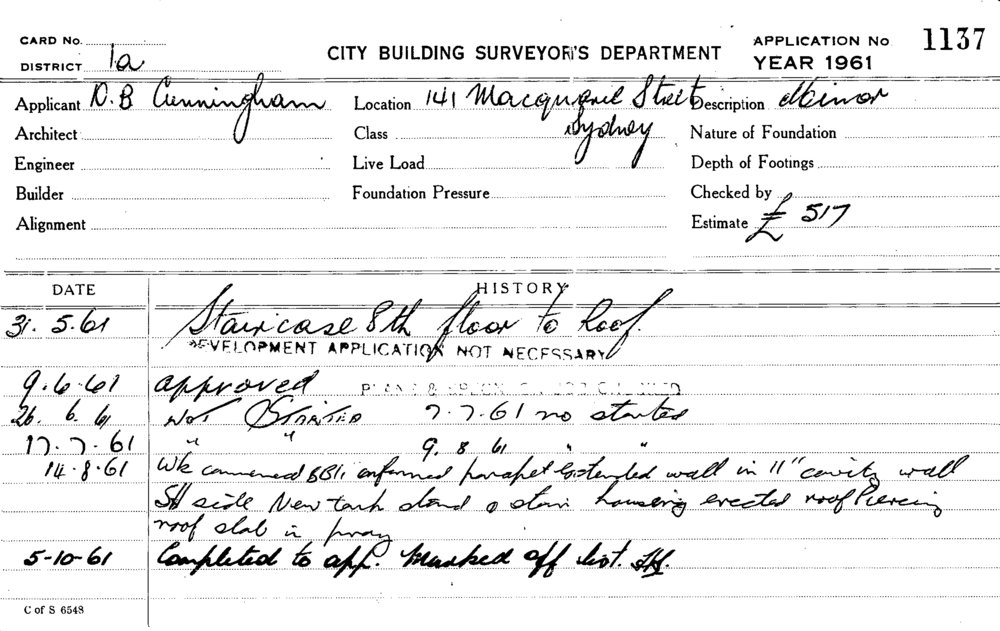 CARD No.
DISTRICT 1a
CITY BUILDING SURVEYOR'S DEPARTMENT
APPLICATION No 1137
YEAR 1961
Applicant D. B Cunningham Location 141 Macquarie Street Sydney Description Minor
Architect Class Nature of Foundation
Engineer Live Load Depth of Footings
Builder Foundation Pressure Checked by
Alignment Estimate £ 517
DATE HISTORY
31. 5.61 Staircase 8th floor to Roof.
DEVELOPMENT APPLICATION NOT NECESSARY
9.6.61 approved PLANS &
26. 6. 61 Not Started 7.7.61 no started
17.7.61 " " 9. 8 61 " "
14.8.61 Wk commenced informed parapet Extended wall in 11" cavity wall
side New tank stand & stair housing erected roof Piercing
roof slab in
5-10-61 Completed to app. Marked off list.
C of S 6548